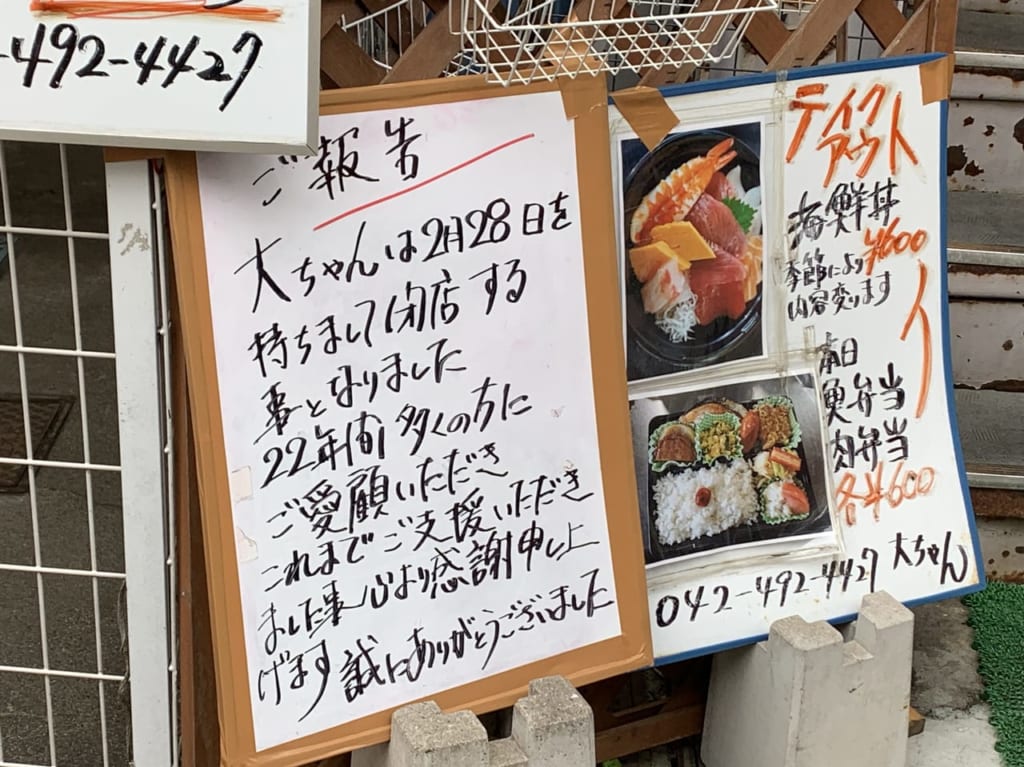 -492-4427
ご報告
大ちゃんは2月28日を
持ちまして閉店する
事となりました
22年間多くの方に
ご愛顧いただき
これまでご支援いただき
ました事心より感謝申し上
げます 誠にありがとうございました
テイク
アウト
海鮮丼
¥600
季節により
内容変ります
本日
魚弁当
肉弁当
各¥600
042-492-4427 大ちゃん